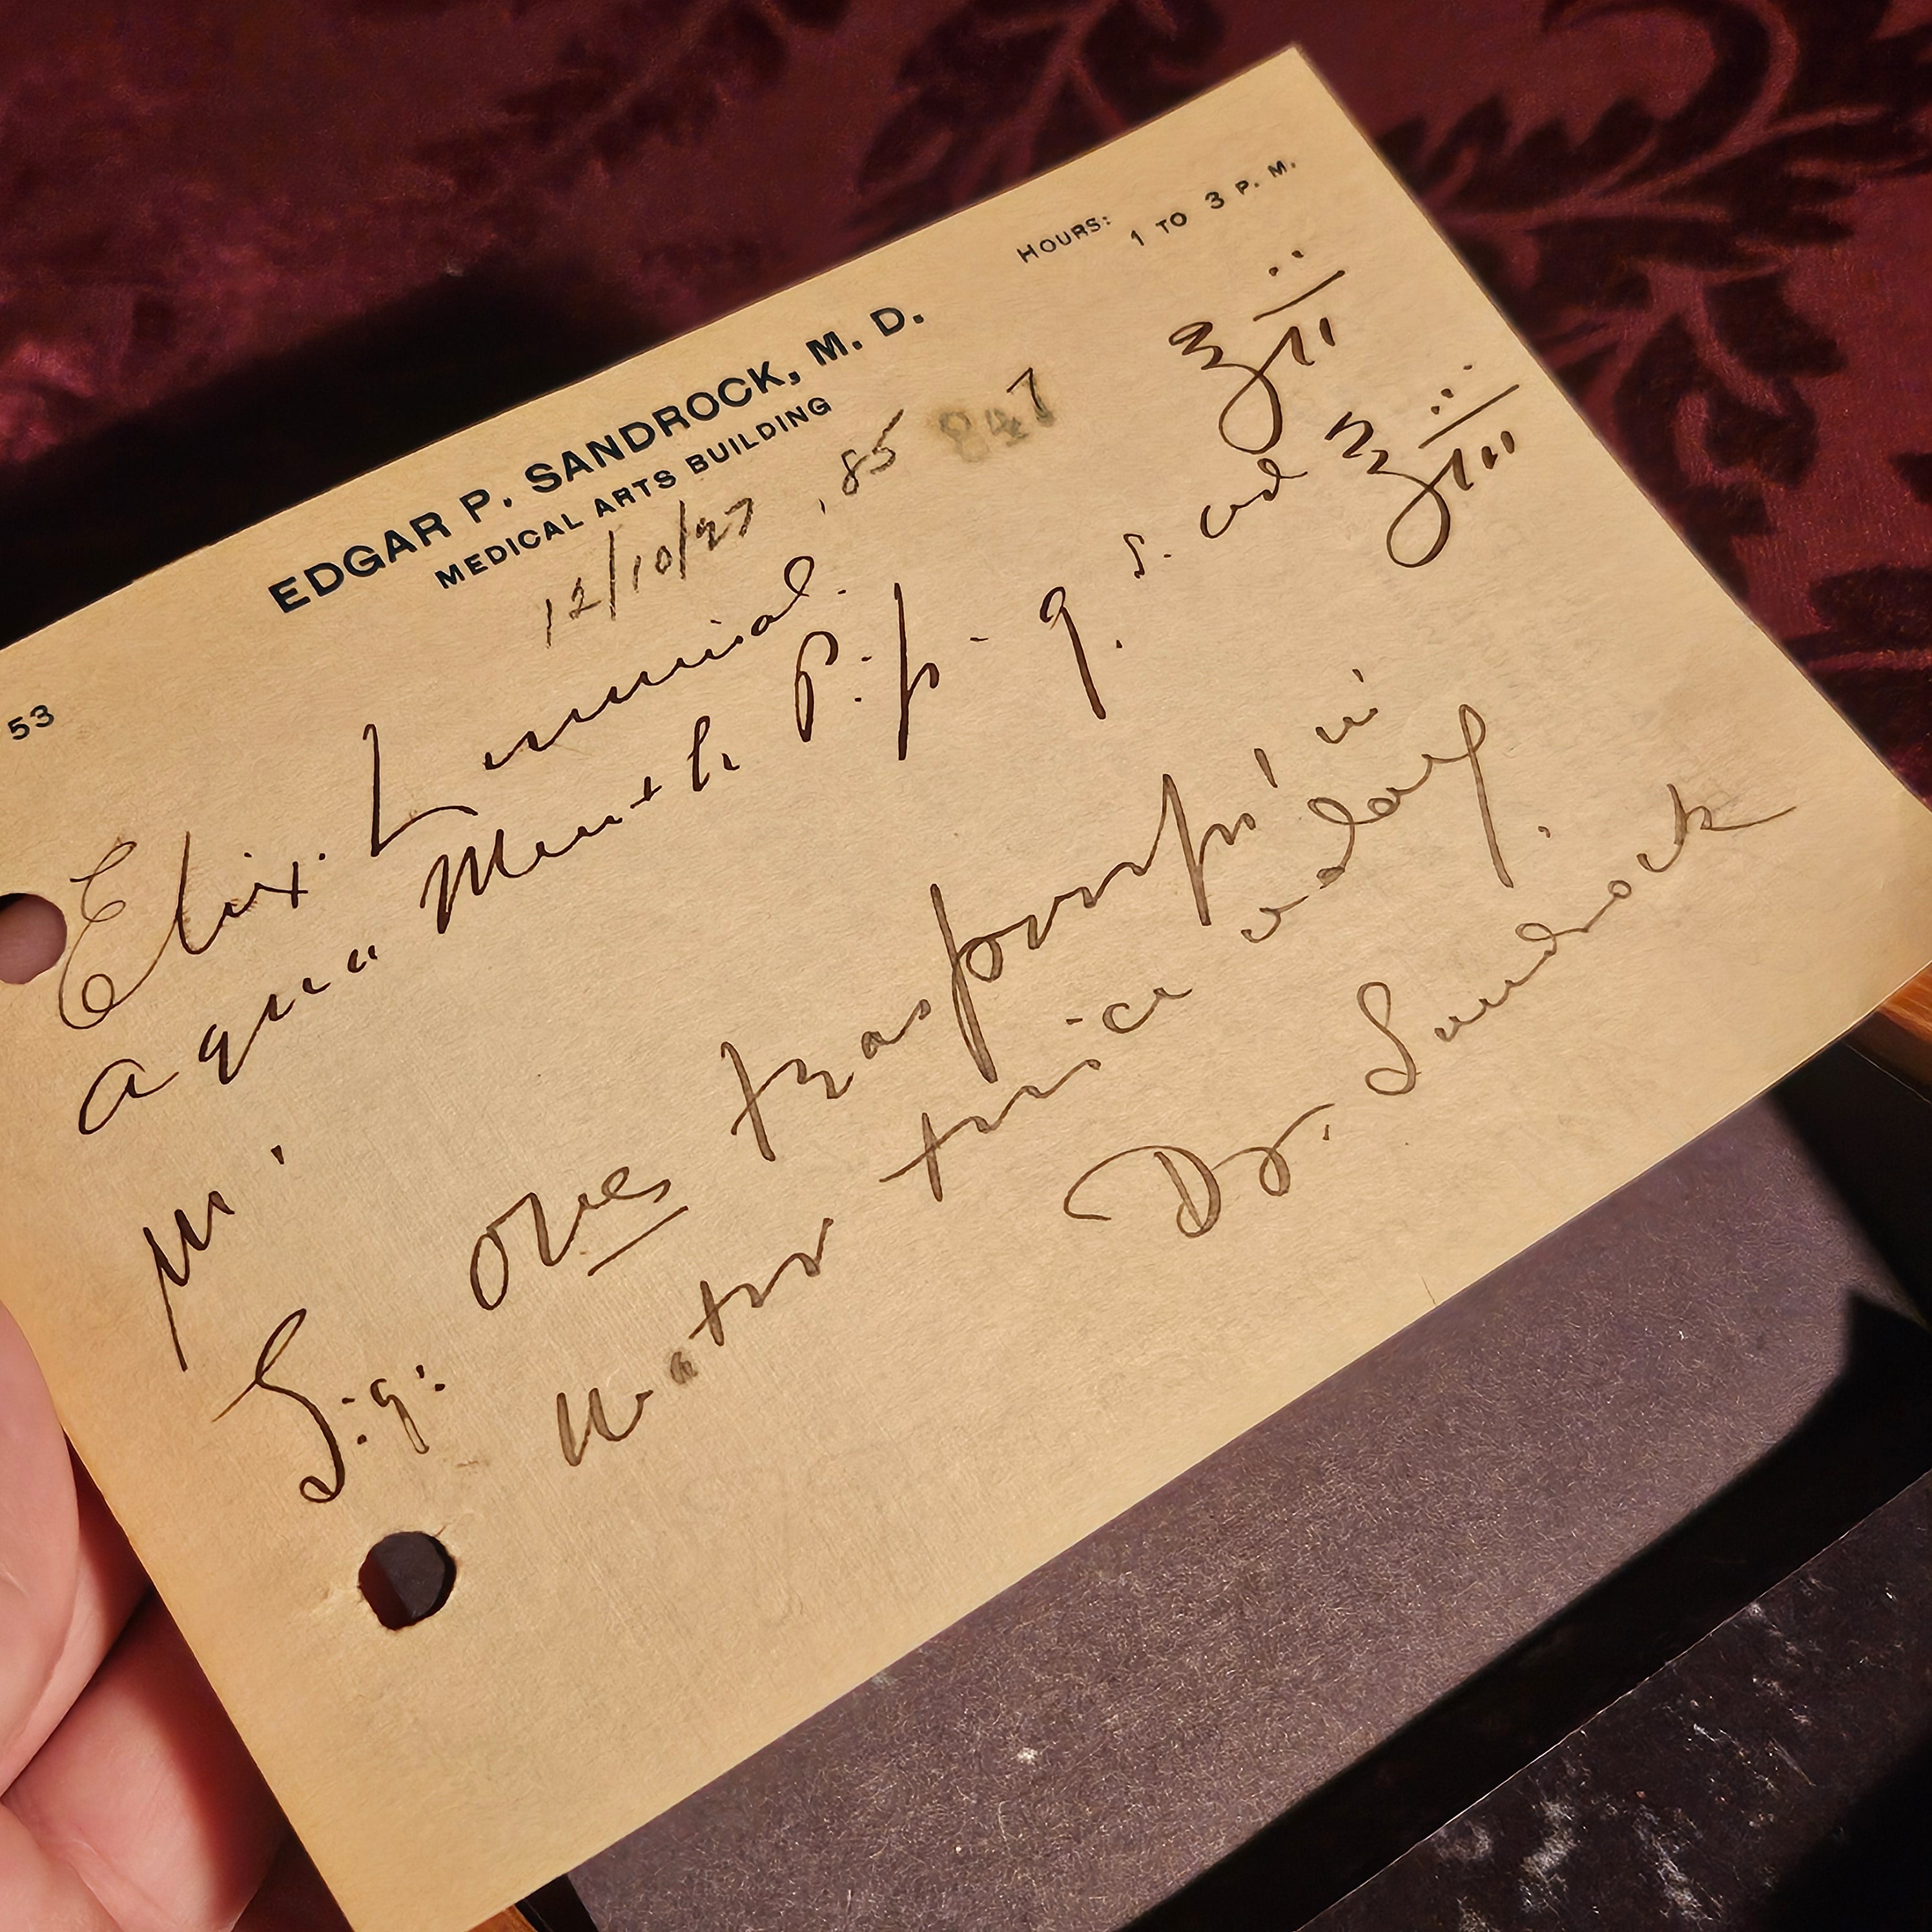 HOURS: 1 TO 3 P. M.
EDGAR P. SANDROCK, M. D.
MEDICAL ARTS BUILDING
12/10/27 .85 847
53
Elix. Luminal. ℥ii
aqua Menth Pip. q. s. ad ℥iii
M.
Sig: One teaspoonful in
water twice a day.
Dr. Sandrock